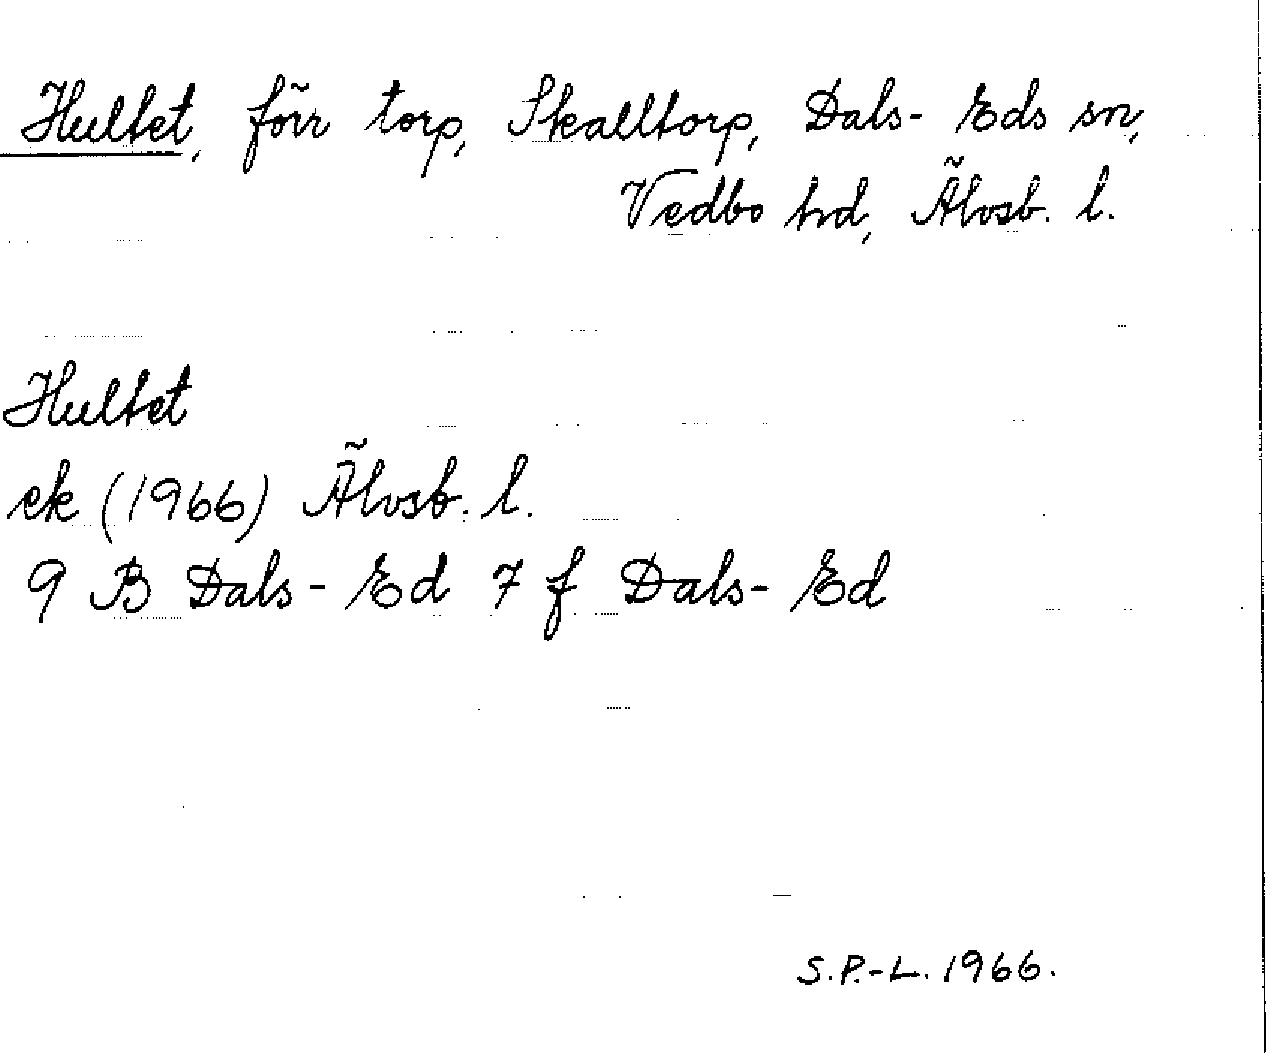 Hultet, förr torp, Skalltorp, Dals-Eds sn,
Vedbo hd, Älvsb. l.
Hultet
ek (1966) Älvsb. l.
9 B Dals-Ed 7 f Dals-Ed
S.P.-L. 1966.